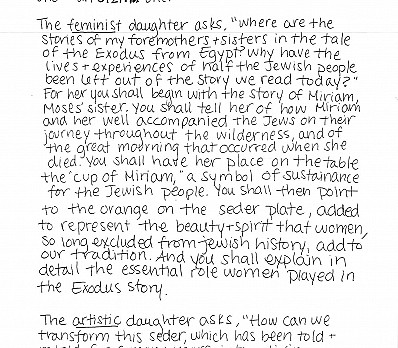 The feminist daughter asks, "where are the
stories of my foremothers + sisters in the tale
of the Exodus from Egypt? why have the
lives + experiences of half the Jewish people
been left out of the story we read today?"
For her you shall begin with the story of Miriam,
Moses' sister. you shall tell her of how Miriam
and her well accompanied the Jews on their
journey throughout the wilderness, and of
the great mourning that occurred when she
died. You shall have her place on the table
the "cup of Miriam," a symbol of sustainance
for the Jewish people. You shall then point
to the orange on the seder plate, added
to represent the beauty + spirit that women,
so long excluded from jewish history, add to
our tradition. And you shall explain in
detail the essential role women played in
the Exodus story.
The artistic daughter asks, "How can we
transform this seder, which has been told +